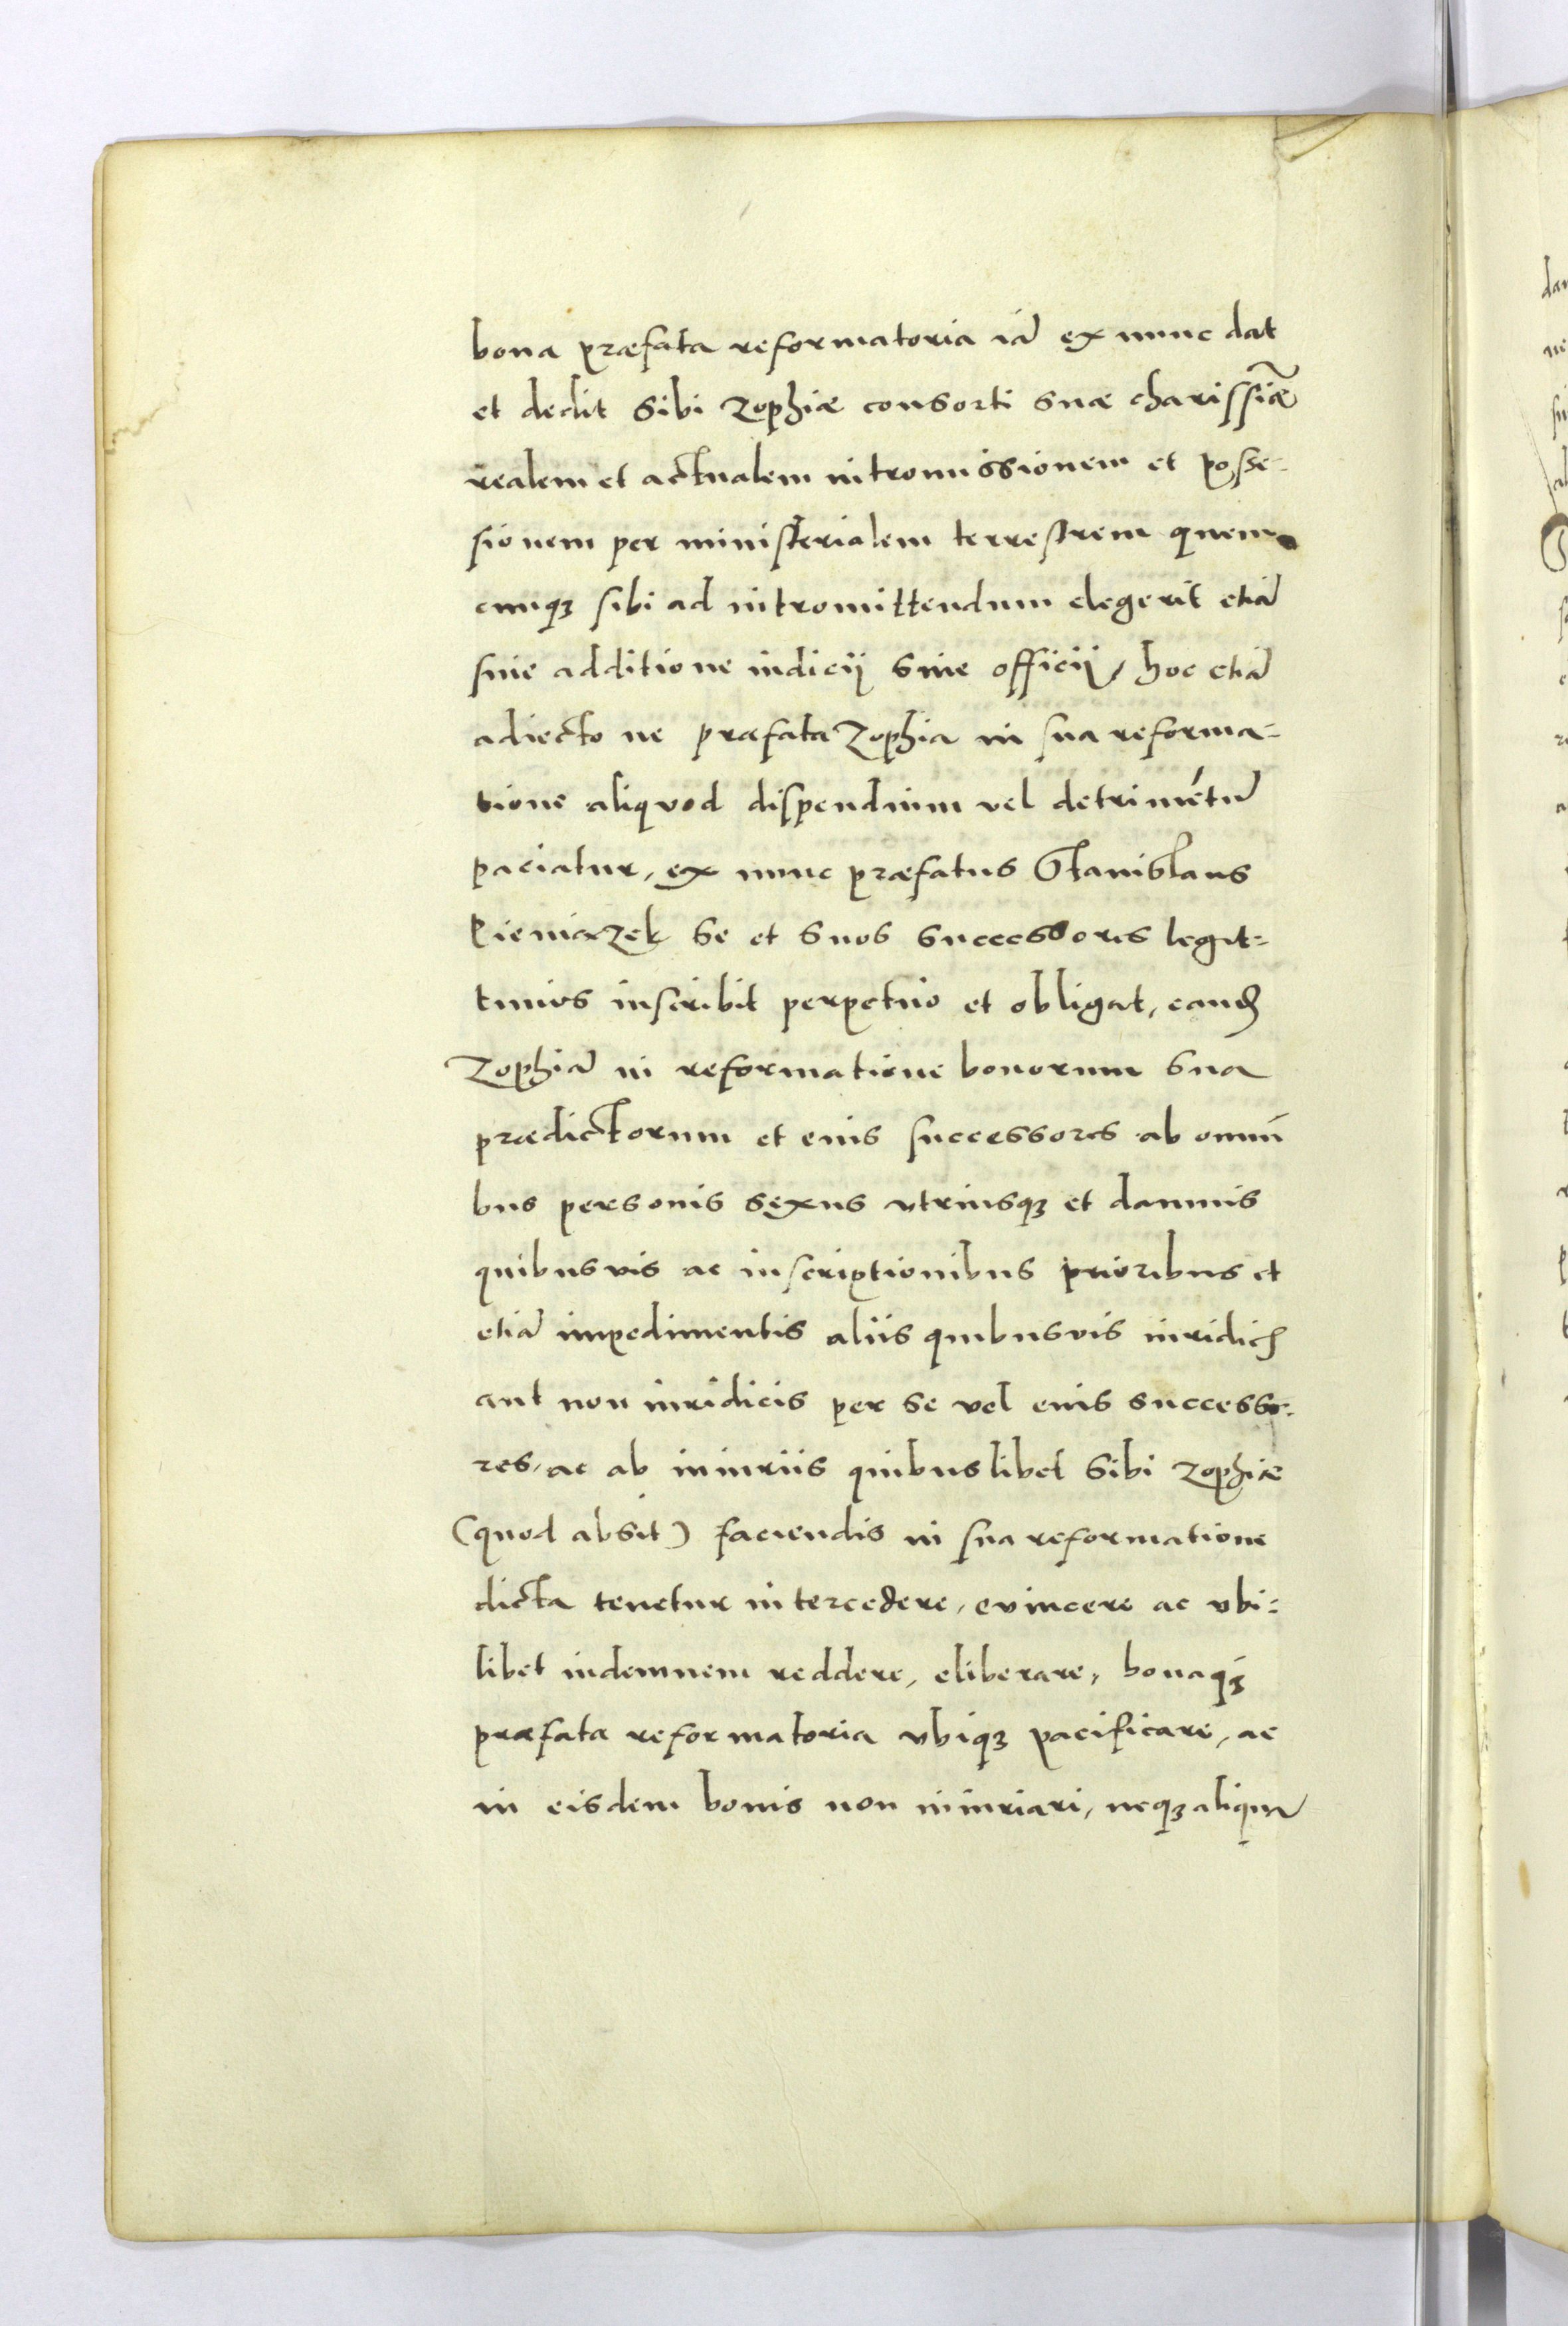 bona præfata reformatoria iā ex nunc dat
et dedit sibi Zophiæ consorti suæ charissīæ
realem et actualem intromissionem et posse-
sionem per ministerialem terrestrem quem
cunqꝫ sibi ad intromittendum elegerit etiā
sine additione iudicij siue officij, hoc etiā
adiecto ne præfata Zophia in sua reforma-
tione aliquod dispendium vel detrimētū
paciatur, ex nunc præfatus Stanislaus
Pieniazek se et suos successores legit-
timos inscribit perpetuo et obligat, eandē
Zophiā in reformatione bonorum sua
prædictorum et eius successores ab omni
bus personis sexus vtriusqꝫ et damnis
quibusvis ac inscriptionibus prioribus et
etiā impedimentis aliis quibusvis iuridicis
aut non iuridicis per se vel eius successo-
res, ac ab iniuriis quibuslibet sibi Zophiæ
(quod absit) faciendis in sua reformatione
dicta tenetur intercedere, evincere ac vbi-
libet indemnem reddere, eliberare, bonaqꝫ
præfata reformatoria vbiqꝫ pacificare, ac
in eisdem bonis non iniuriari, neqꝫ aliquā